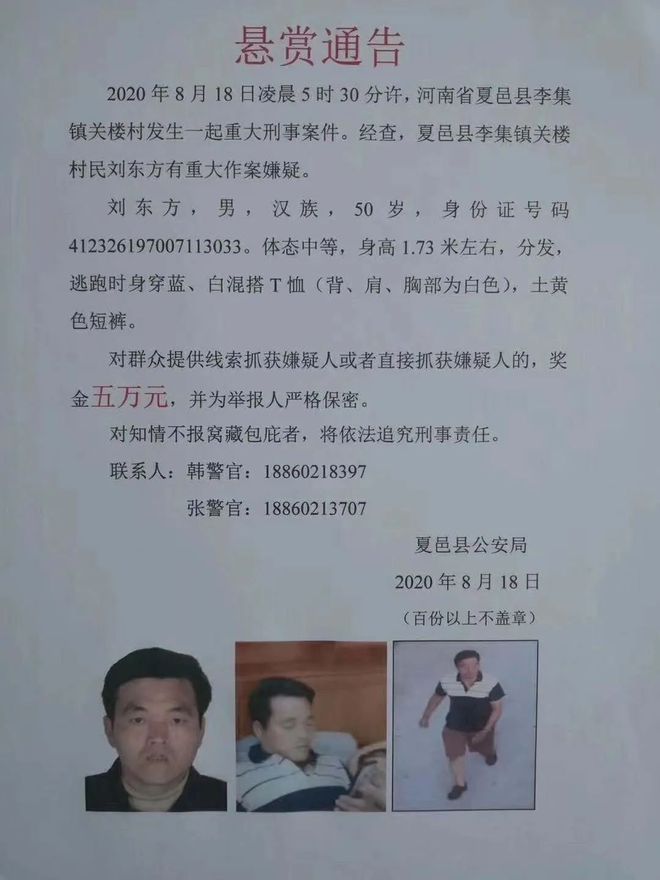 悬赏通告
2020 年 8 月 18 日凌晨 5 时 30 分许，河南省夏邑县李集
镇关楼村发生一起重大刑事案件。经查，夏邑县李集镇关楼
村民刘东方有重大作案嫌疑。
刘东方，男，汉族，50 岁，身份证号码
412326197007113033。体态中等，身高 1.73 米左右，分发，
逃跑时身穿蓝、白混搭 T 恤（背、肩、胸部为白色），土黄
色短裤。
对群众提供线索抓获嫌疑人或者直接抓获嫌疑人的，奖
金五万元，并为举报人严格保密。
对知情不报窝藏包庇者，将依法追究刑事责任。
联系人：韩警官：18860218397
张警官：18860213707
夏邑县公安局
2020 年 8 月 18 日
（百份以上不盖章）